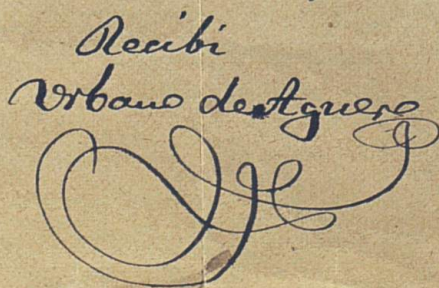 Recibi
Urbano de Aguero